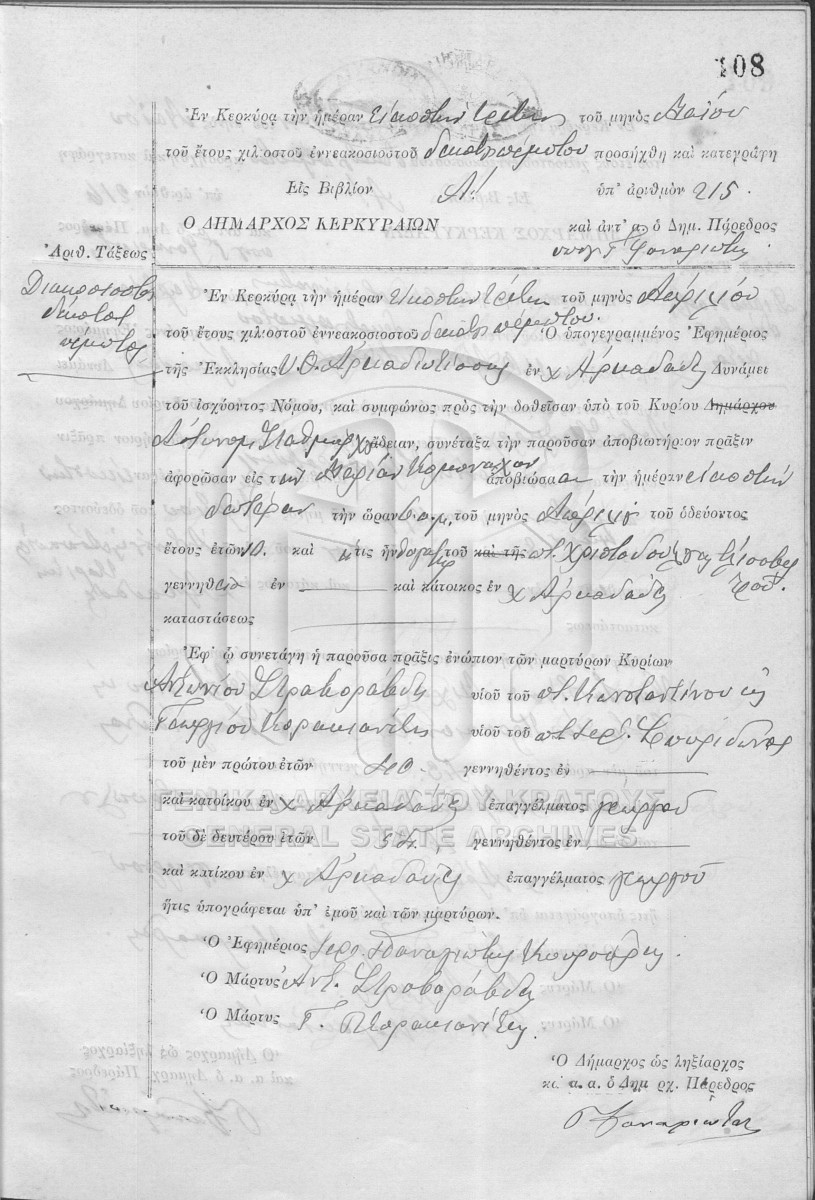 108
Ἐν Κερκύρᾳ τὴν ἡμέραν εἰκοστὴν τρίτην τοῦ μηνὸς Μαΐου
τοῦ ἔτους χιλιοστοῦ ἐννεακοσιοστοῦ δεκάτου πέμπτου προσήχθη καὶ κατεγράφη
Εἰς Βιβλίον Α! ὑπ' ἀριθμὸν 215
Ο ΔΗΜΑΡΧΟΣ ΚΕΡΚΥΡΑΙΩΝ καὶ ἀντ' α. ὁ Δημ. Πάρεδρος
Ἀριθ. Τάξεως
Διακοσιοστὸς
δέκατος
πέμπτος
Ἐν Κερκύρᾳ τὴν ἡμέραν εἰκοστὴν τρίτην τοῦ μηνὸς Ἀπριλίου
τοῦ ἔτους χιλιοστοῦ ἐννεακοσιοστοῦ δεκάτου πέμπτου. Ὁ ὑπογεγραμμένος Ἐφημέριος
τῆς Ἐκκλησίας Υ.Θ. Ἀρκαδιωτίσσης ἐν χ Ἀρκαδάδες Δυνάμει
τοῦ ἰσχύοντος Νόμου, καὶ συμφώνως πρὸς τὴν δοθεῖσαν ὑπὸ τοῦ Κυρίου Δημάρχου
Ἀστυνομ. Σταθμάρχου ἄδειαν, συνέταξα τὴν παροῦσαν ἀποβιωτήριον πρᾶξιν
ἀφορῶσαν εἰς τὴν Μαρίαν ἀποβιώσασα τὴν ἡμέραν εἰκοστὴν
δευτέραν τὴν ὥραν τοῦ μηνὸς Ἀπριλίου τοῦ ὁδεύοντος
ἔτους ἐτῶν καὶ ἥτις ἦν θυγάτηρ τοῦ καὶ τῆς Χριστοδούλου
γεννηθεῖσα ἐν καὶ κάτοικος ἐν χ Ἀρκαδάδες
καταστάσεως
Ἐφ' ᾧ συνετάγη ἡ παροῦσα πρᾶξις ἐνώπιον τῶν μαρτύρων Κυρίων
Ἀντωνίου Στραβοράβδη υἱοῦ τοῦ Κωνσταντίνου κ
Γεωργίου Κορακιανίτη υἱοῦ τοῦ Σπυρίδωνος
τοῦ μὲν πρώτου ἐτῶν 40 γεννηθέντος ἐν
καὶ κατοίκου ἐν χ Ἀρκαδάδες ἐπαγγέλματος γεωργοῦ
ΓΕΝΙΚΑ ΑΡΧΕΙΑ ΤΟΥ ΚΡΑΤΟΥΣ
GENERAL STATE ARCHIVES
τοῦ δὲ δευτέρου ἐτῶν 54 γεννηθέντος ἐν
καὶ κατίκου ἐν χ Ἀρκαδάδες ἐπαγγέλματος γεωργοῦ
ἥτις ὑπογράφεται ὑπ' ἐμοῦ καὶ τῶν μαρτύρων.
Ὁ Ἐφημέριος Ἱερ. Παναγιώτης
Ὁ Μάρτυς Ἀντ. Στραβοράβδης
Ὁ Μάρτυς Γ. Κορακιανίτης
Ὁ Δήμαρχος ὡς ληξίαρχος
κα α. α. ὁ Δημ ρχ. Πάρεδρος